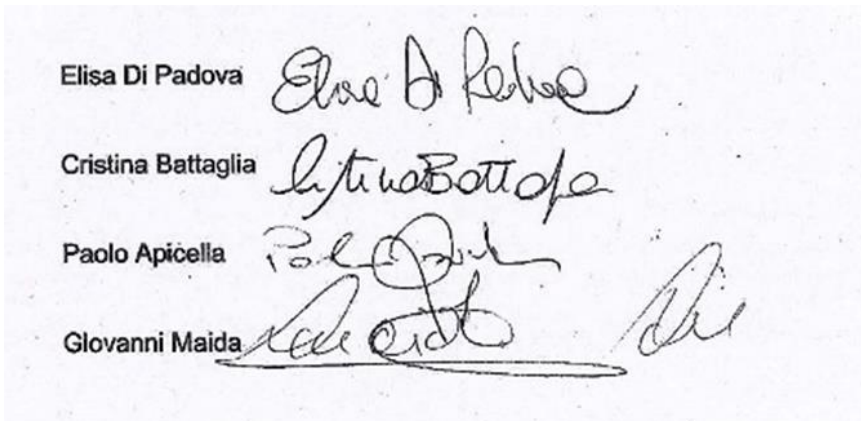 Elisa Di Padova Elisa Di Padova
Cristina Battaglia Cristina Battaglia
Paolo Apicella Paolo Apicella
Giovanni Maida